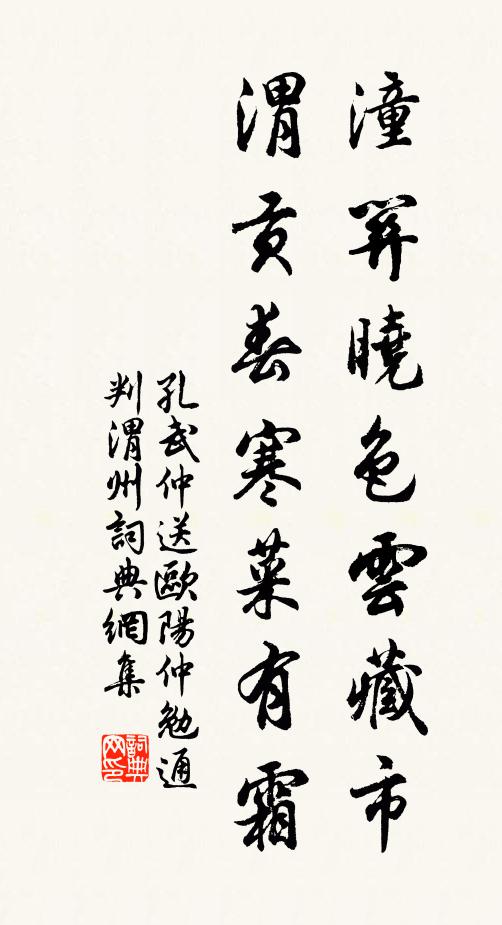 潼關曉色雲藏市
渭貢春寒菜有霜
孔武仲送歐陽仲勉通
判渭州詞典網集
詞典
网印